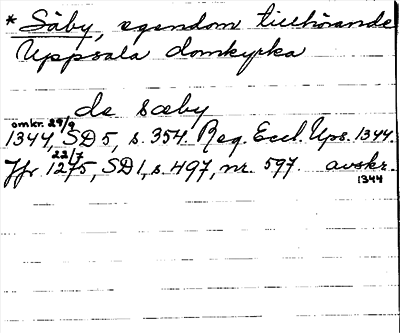 * Säby, egendom tillhörande
Uppsala domkyrka
de sæby
omkr. 29/9
1344, SD 5, s. 354. Reg. Eccl. Ups. 1344.
22/7
Jfr 1275, SD 1, s. 497, nr. 597. avskr.
1344